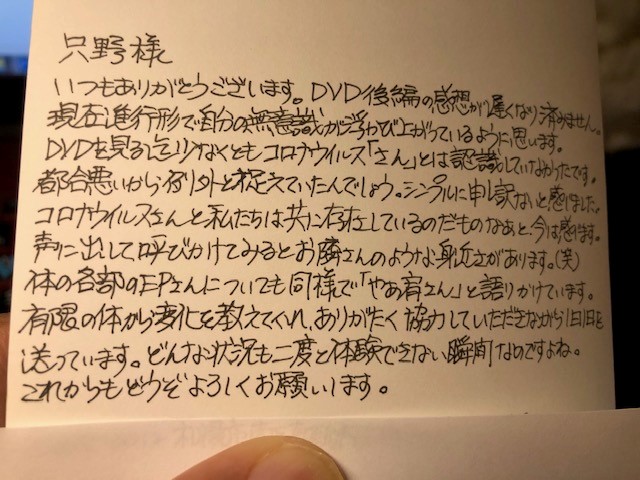 只野様
いつもありがとうございます。DVD後編の感想が遅くなり済みません。
現在進行形で自分の無意識が浮かび上がっているように思います。
DVDを見る迄少なくともコロナウイルス「さん」とは認識していなかったです。
都合悪いから例外と捉えていたんでしょう。シンプルに申し訳ないと感じました。
コロナウイルスさんと私たちは共に存在しているのだものなあと今は感じます。
声に出して呼びかけてみるとお隣さんのような身近さがあります。(笑)
体の各部のEPさんについても同様で「やあ肩さん」と語りかけています。
有限の体から変化を教えてくれ、ありがたく協力していただきながら1日1日を
送っています。どんな状況も二度と体験できない瞬間なのですよね。
これからもどうぞよろしくお願いします。